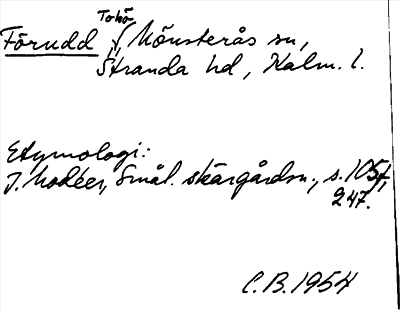 Tohö
Förudd Mönsterås sn,
Stranda hd, Kalm. l.
Etymologi:
I. Modéer, Smål. skärgårdsn., s. 105f,
247.
C.B. 1954